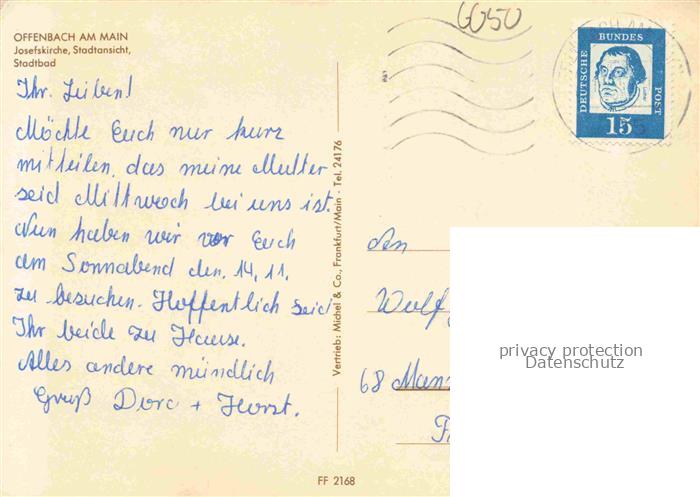 OFFENBACH AM MAIN
Josefskirche, Stadtansicht,
Stadtbad
6050
DEUTSCHE BUNDES POST
15
Ihr Lieben!
Möchte Euch nur kurz
mitteilen, das meine Mutter
seid Mittwoch bei uns ist.
Nun haben wir vor Euch
am Sonnabend den. 14.11.
zu besuchen. Hoffentlich seid
Ihr beide zu Hause.
Alles andere mündlich
Gruß Dora + Horst.
Vertrieb: Michel & Co., Frankfurt/Main · Tel. 24176
An
Wulf
68 Mann
privacy protection
Datenschutz
FF 2168